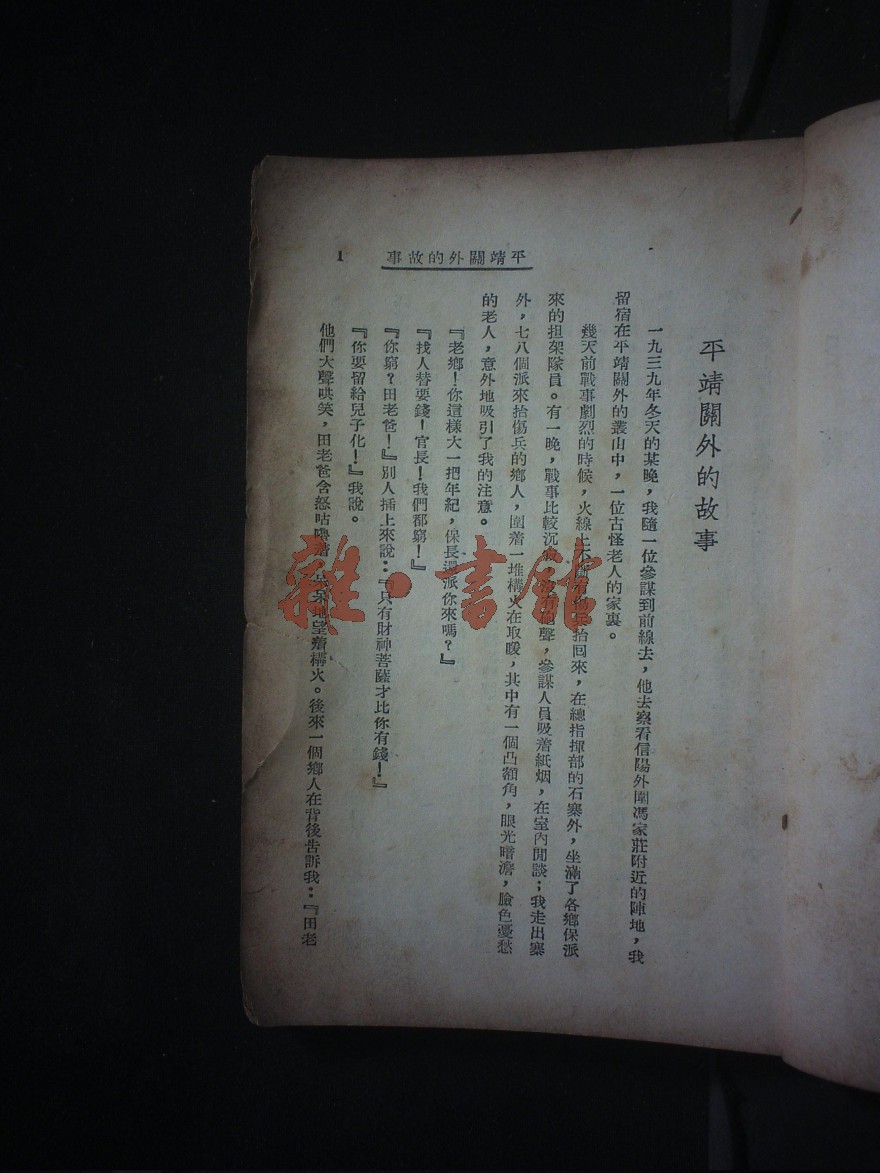 平靖關外的故事
1
平靖關外的故事
一九三九年冬天的某晚，我隨一位參謀到前線去，他去察看信陽外圍馮家莊附近的陣地，我
留宿在平靖關外的叢山中，一位古怪老人的家裏。
幾天前戰事劇烈的時候，火線上不斷有傷兵抬囘來，在總指揮部的石寨外，坐滿了各鄉保派
來的担架隊員。有一晚，戰事比較沉，聲，參謀人員吸着紙烟，在室內閒談；我走出寨
外，七八個派來抬傷兵的鄉人，圍着一堆構火在取暖，其中有一個凸額角，眼光暗澹，臉色憂愁
的老人，意外地吸引了我的注意。
『老鄉！你這樣大一把年紀，保長還派你來嗎？』
『找人替要錢！官長！我們都窮！』
『你窮？田老爸！』別人插上來說：『只有財神菩薩才比你有錢！』
『你要留給兒子化！』我說。
他們大聲哄笑，田老爸含怒咕嚕着，呆呆地望着構火。後來一個鄉人在背後告訴我：『田老
雜·書館